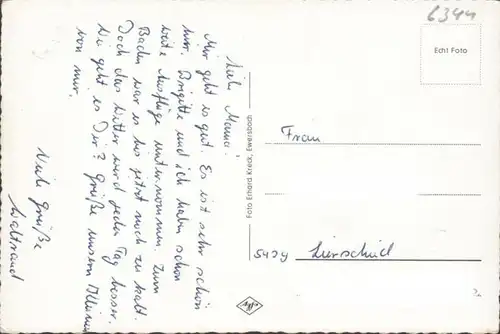 Liebe Mama!
Mir geht es gut. Es ist sehr schön
hier. Brigitte und ich haben schon
weite Ausflüge unternommen. Zum
Baden war es bis jetzt noch zu kalt.
Doch das Wetter wird jeden Tag besser.
Wie geht es Dir? Grüße unsern
von mir.
Viele Grüße
Waltraud
6344
Echt Foto
Foto Erhard Kreck, Ewersbach
Frau
5439
Agfa